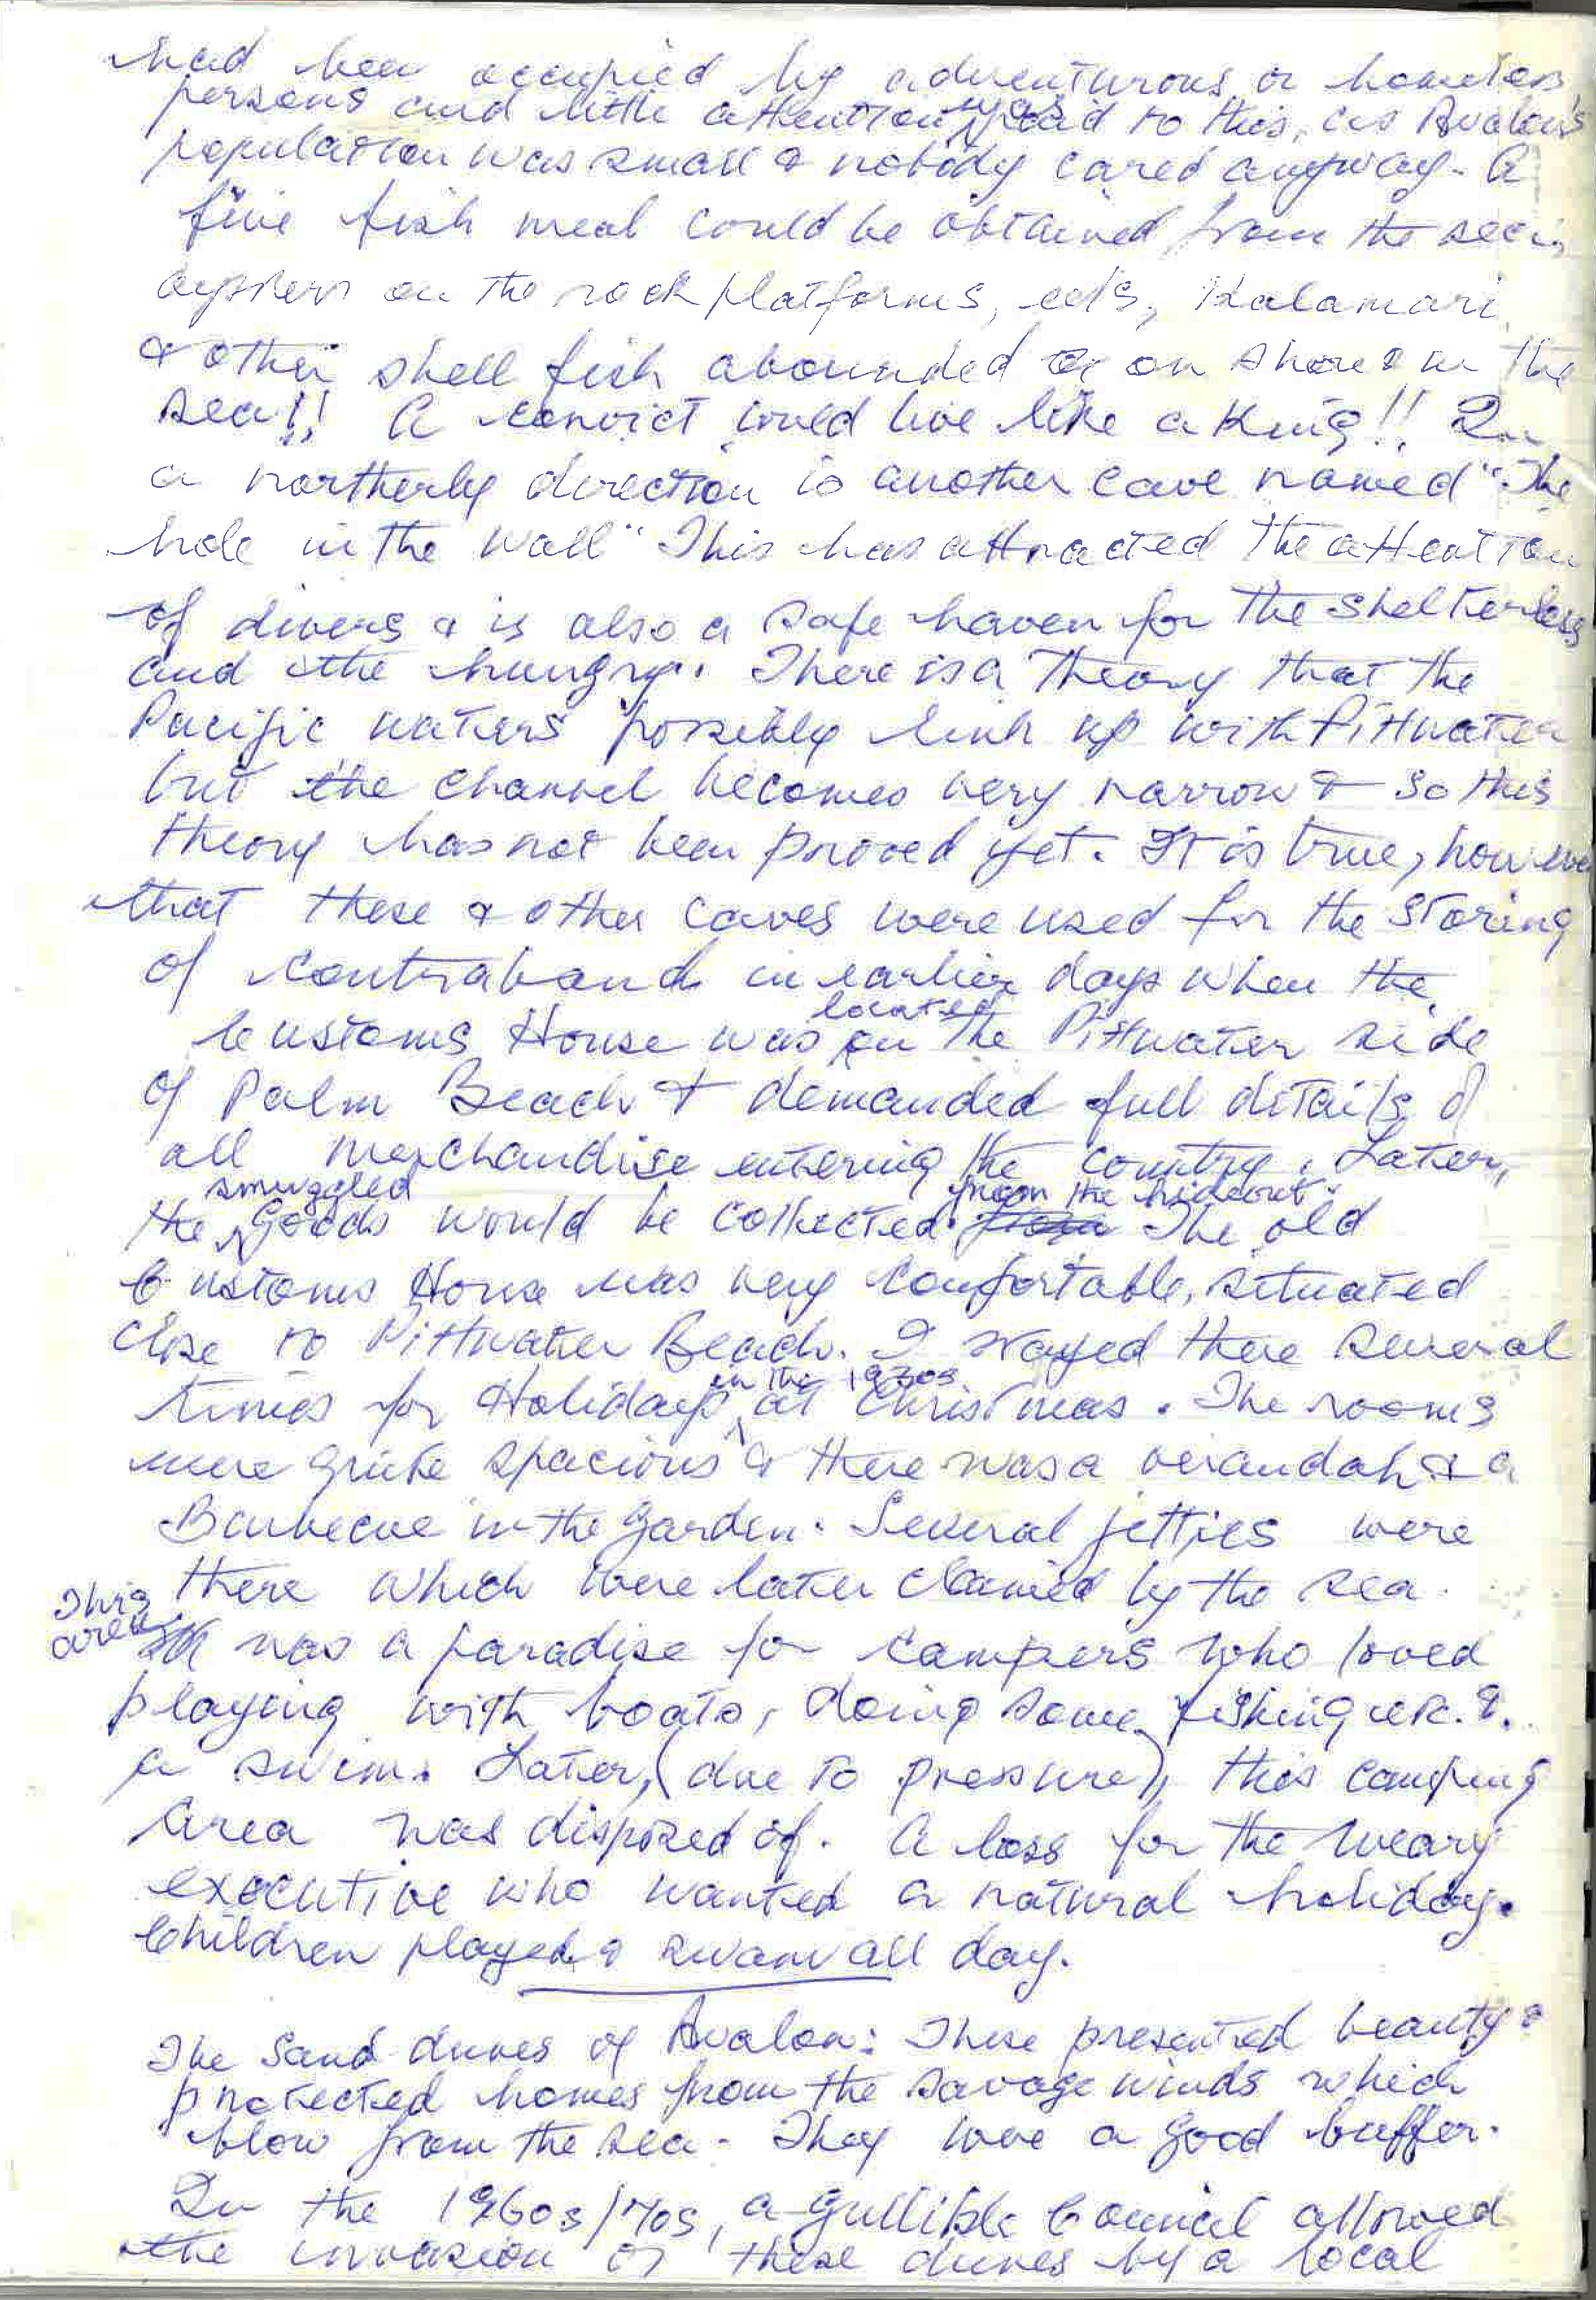 had been occupied by adventurous or homeless
persons and little attention was paid to this, as Avalon's
population was small & nobody cared anyway. A
fine fish meal could be obtained from the sea,
oysters on the rock platforms, eels, Kalamari
& other shell fish abounded on shore & in the
sea!! A convict could live like a King!! In
a northerly direction is another cave named "The
hole in the wall" This has attracted the attention
of divers & is also a safe haven for the shelterless
and the hungry. There is a theory that the
Pacific waters possibly link up with Pittwater
but the channel becomes very narrow & so this
theory has not been proved yet. It is true, however
that these & other caves were used for the storing
of contraband in earlier days when the
Customs House was located on the Pittwater side
of Palm Beach & demanded full details of
all merchandise entering the country. Later,
the smuggled goods would be collected from the hideout. The old
Customs House was very comfortable, situated
close to Pittwater Beach. I stayed there several
times for Holidays in the 1970s at Christmas. The rooms
were quite spacious & there was a verandah & a
Barbecue in the garden. Several jetties were
there which were later claimed by the sea.
This area was a paradise for campers who loved
playing with boats, doing some fishing etc. &
a swim. Later, (due to pressure), this camping
area was disposed of. A loss for the weary
executive who wanted a natural holiday.
Children played & swam all day.
The Sand dunes of Avalon: These presented beauty &
protected homes from the savage winds which
blow from the sea. They were a good buffer.
In the 1960s/70s, a gullible Council allowed
the invasion of these dunes by a local